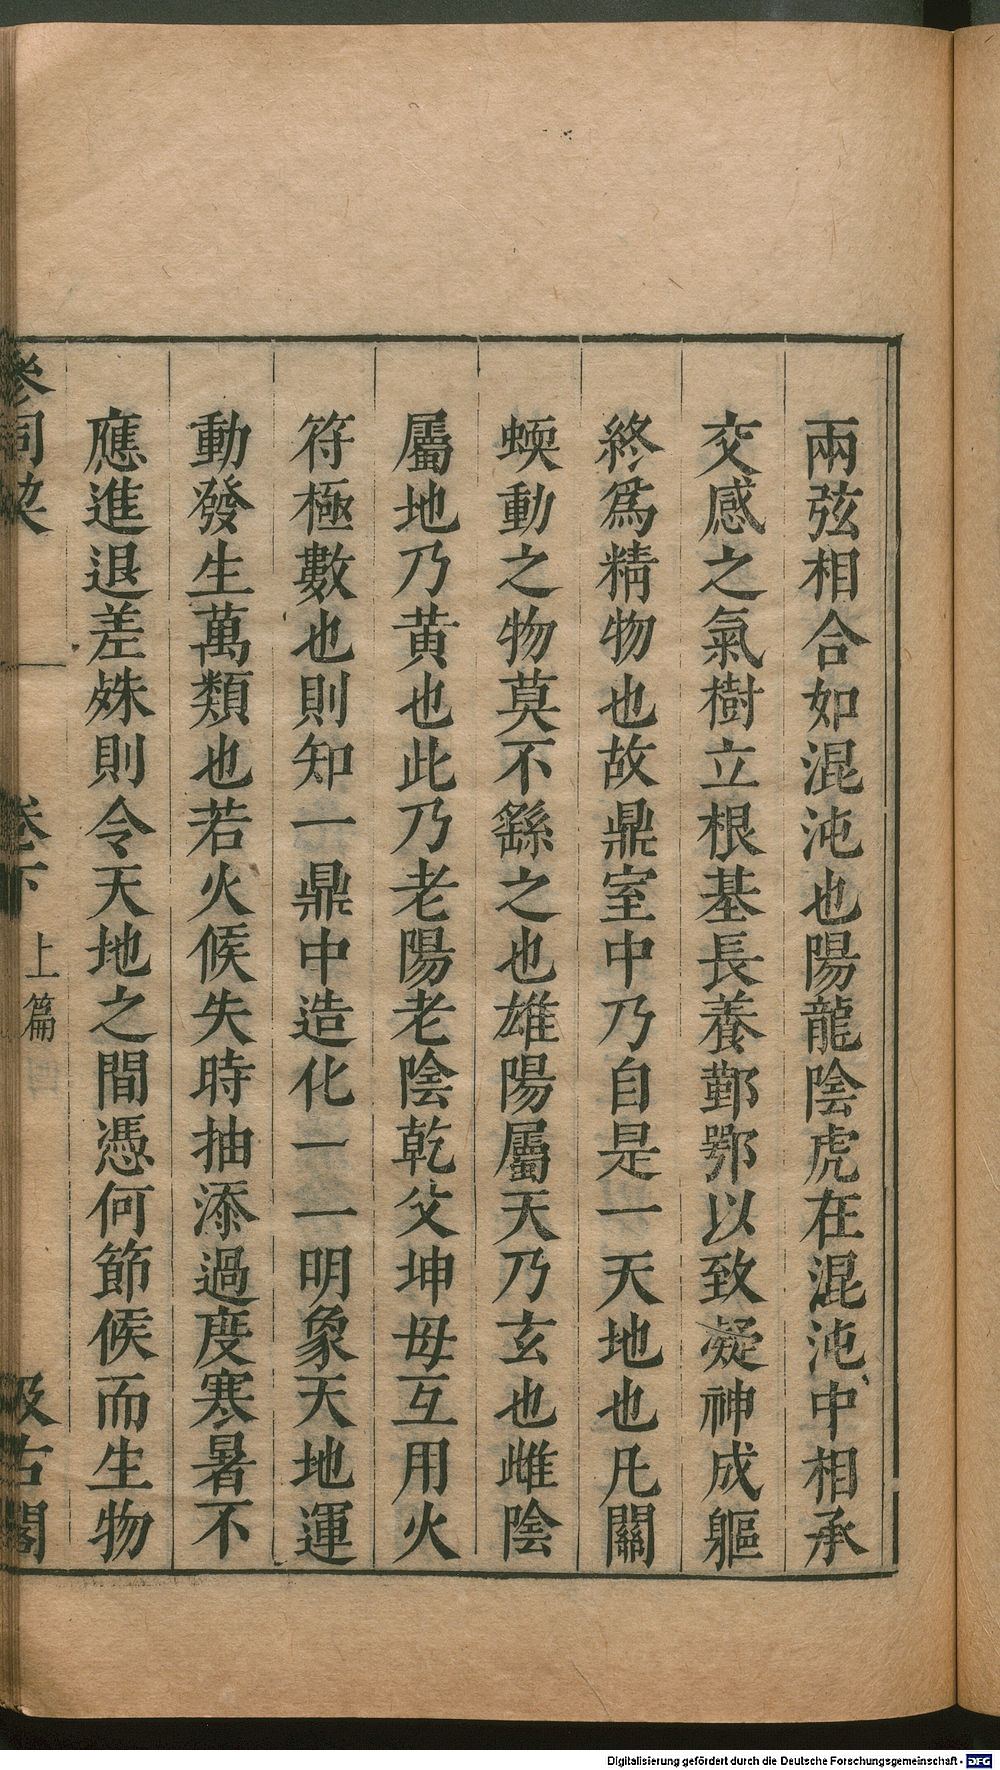 兩弦相合如混沌也陽龍陰虎在混沌中相承
交感之氣樹立根基長養鄞鄂以致凝神成軀
終爲精物也故鼎室中乃自是一天地也凡關
蝡動之物莫不繇之也雄陽屬天乃玄也雌陰
屬地乃黄也此乃老陽老陰乾父坤母互用火
符極數也則知一鼎中造化一一明象天地運
動發生萬類也若火候失時抽添過度寒暑不
應進退差殊則令天地之間憑何節候而生物
參同契 卷下 上篇 汲古閣
Digitalisierung gefördert durch die Deutsche Forschungsgemeinschaft - DFG